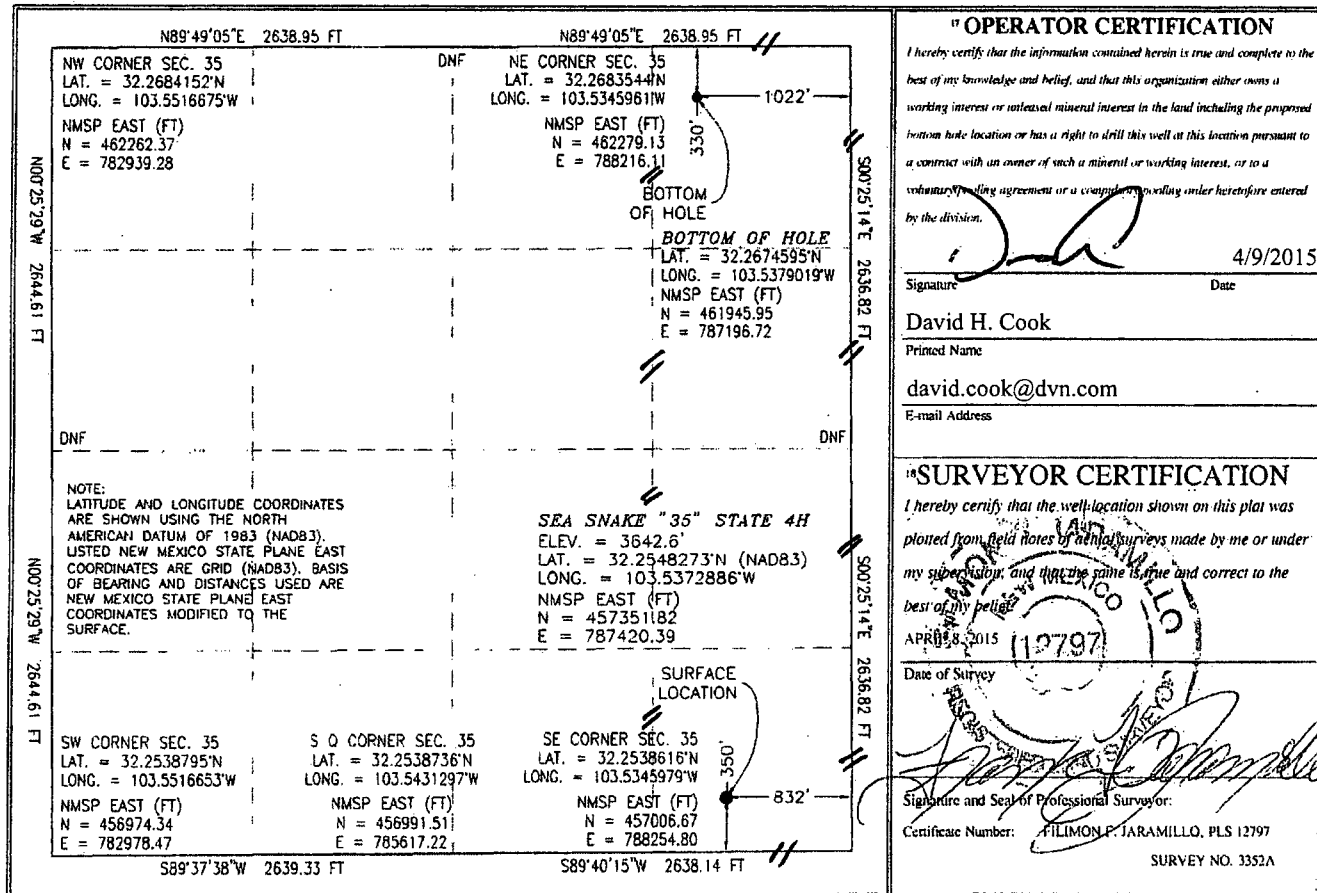 N89°49'05"E 2638.95 FT
N89°49'05"E 2638.95 FT
NW CORNER SEC. 35
LAT. = 32.2684152'N
LONG. = 103.5516675'W
NMSP EAST (FT)
N = 462262.37
E = 782939.28
DNF
NE CORNER SEC. 35
LAT. = 32.2683544'N
LONG. = 103.5345961'W
NMSP EAST (FT)
N = 462279.13
E = 788216.11
1022'
330'
BOTTOM
OF HOLE
BOTTOM OF HOLE
LAT. = 32.2674595'N
LONG. = 103.5379019'W
NMSP EAST (FT)
N = 461945.95
E = 787196.72
N00°25'29"W 2644.61 FT
S00°25'14"E 2636.82 FT
DNF
DNF
NOTE:
LATITUDE AND LONGITUDE COORDINATES
ARE SHOWN USING THE NORTH
AMERICAN DATUM OF 1983 (NAD83).
LISTED NEW MEXICO STATE PLANE EAST
COORDINATES ARE GRID (NAD83). BASIS
OF BEARING AND DISTANCES USED ARE
NEW MEXICO STATE PLANE EAST
COORDINATES MODIFIED TO THE
SURFACE.
SEA SNAKE "35" STATE 4H
ELEV. = 3642.6'
LAT. = 32.2548273'N (NAD83)
LONG. = 103.5372886'W
NMSP EAST (FT)
N = 457351.82
E = 787420.39
N00°25'29"W 2644.61 FT
S00°25'14"E 2636.82 FT
SURFACE
LOCATION
350'
832'
SW CORNER SEC. 35
LAT. = 32.2538795'N
LONG. = 103.5516653'W
NMSP EAST (FT)
N = 456974.34
E = 782978.47
S Q CORNER SEC. 35
LAT. = 32.2538736'N
LONG. = 103.5431297'W
NMSP EAST (FT)
N = 456991.51
E = 785617.22
SE CORNER SEC. 35
LAT. = 32.2538616'N
LONG. = 103.5345979'W
NMSP EAST (FT)
N = 457006.67
E = 788254.80
S89°37'38"W 2639.33 FT
S89°40'15"W 2638.14 FT
17 OPERATOR CERTIFICATION
I hereby certify that the information contained herein is true and complete to the
best of my knowledge and belief, and that this organization either owns a
working interest or unleased mineral interest in the land including the proposed
bottom hole location or has a right to drill this well at this location pursuant to
a contract with an owner of such a mineral or working interest, or to a
voluntary pooling agreement or a compulsory pooling order heretofore entered
by the division.
4/9/2015
Signature Date
David H. Cook
Printed Name
david.cook@dvn.com
E-mail Address
18 SURVEYOR CERTIFICATION
I hereby certify that the well location shown on this plat was
plotted from field notes of actual surveys made by me or under
my supervision, and that the same is true and correct to the
best of my belief.
APRIL 8, 2015
Date of Survey
JARAMILLO
NEW MEXICO
12797
SURVEYOR
Signature and Seal of Professional Surveyor:
Certificate Number: FILIMON F. JARAMILLO, PLS 12797
SURVEY NO. 3352A